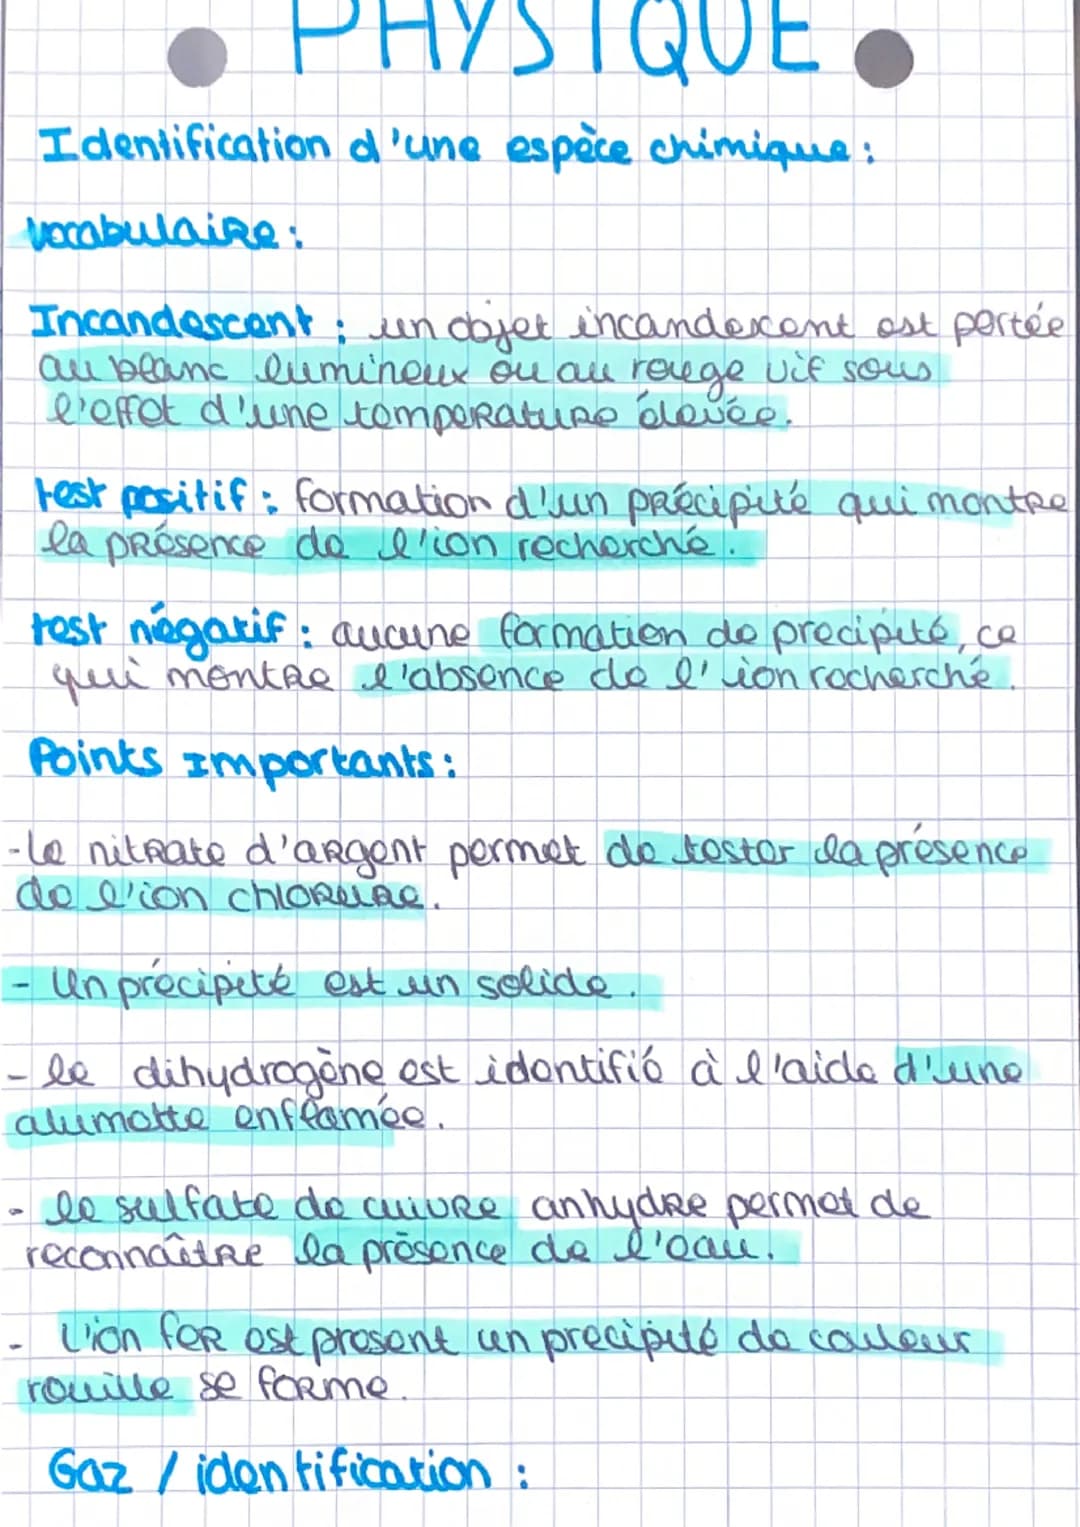 PHYSIQUE
Identification d'une espèce chimique :
vocabulaire :
Incandescent : un objet incandescent est portée
au blanc lumineux ou au rouge vif sous
l'effet d'une température élevée.
test positif : formation d'un précipité qui montre
la présence de l'ion recherché.
test négatif : aucune formation de precipité, ce
qui montre l'absence de l'ion recherché.
Points Importants :
-le nitrate d'argent permet de tester la présence
de l'ion chlorure.
- Un précipité est un solide.
- le dihydrogène est identifié à l'aide d'une
alumette enflamée.
- le sulfate de cuivre anhydre permet de
reconnaître la présence de l'eau.
- L'ion fer est present un precipité de couleur
rouille se forme.
Gaz / identification :